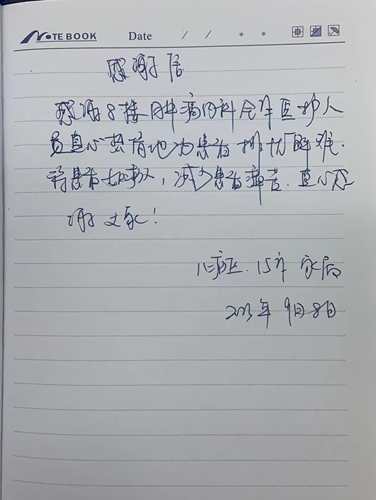 NOTEBOOK Date / /
感谢信
感谢8楼肿瘤内科全体医护人
员真心热情地为患者排忧解难.
待患者如亲人，减少患者痛苦.真心感
谢大家！
病区.15床 家属
2023年9月8日